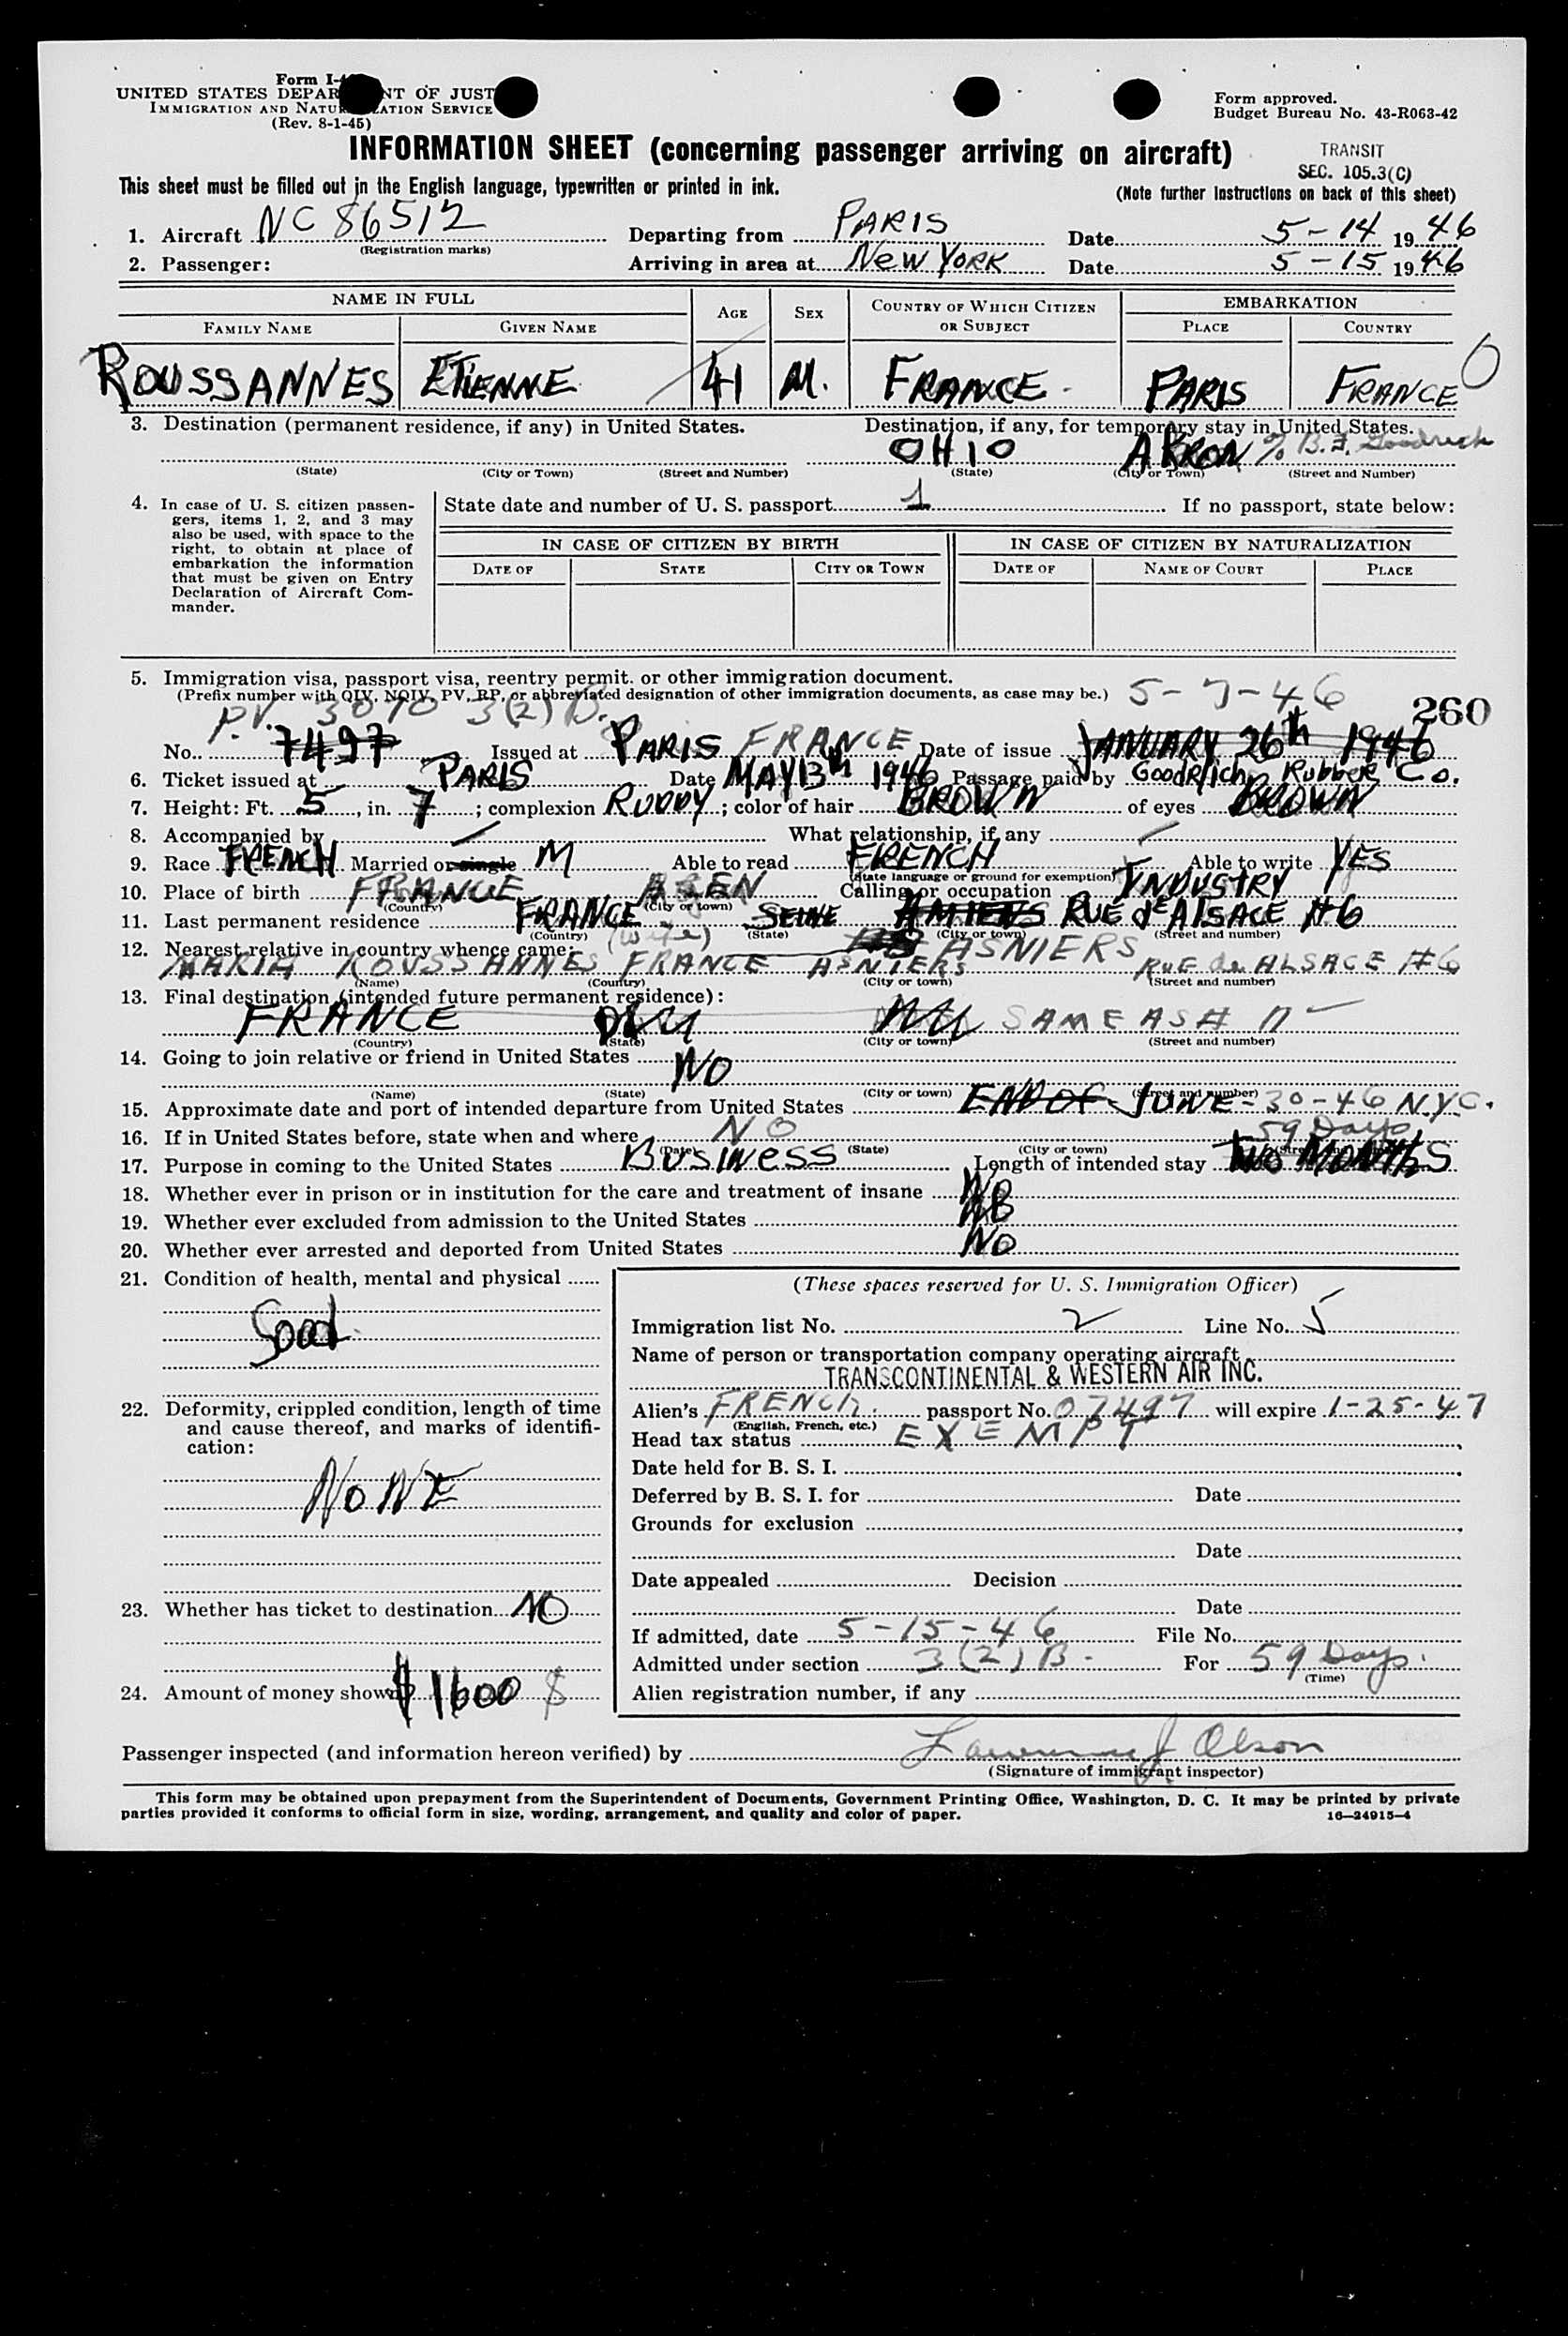 Form I-4
UNITED STATES DEPAR NT OF JUST
IMMIGRATION AND NATU ATION SERVICE
(Rev. 8-1-45)
Form approved.
Budget Bureau No. 43-R063-42
INFORMATION SHEET (concerning passenger arriving on aircraft)
TRANSIT
SEC. 105.3(C)
This sheet must be filled out in the English language, typewritten or printed in ink.
(Note further instructions on back of this sheet)
1. Aircraft NC 86512 Departing from PARIS Date 5-14 1946
(Registration marks)
2. Passenger: Arriving in area at NEW YORK Date 5-15 1946
NAME IN FULL AGE SEX COUNTRY OF WHICH CITIZEN OR SUBJECT EMBARKATION
FAMILY NAME GIVEN NAME PLACE COUNTRY
ROUSSANNES ETIENNE 41 M. FRANCE PARIS FRANCE 0
3. Destination (permanent residence, if any) in United States. Destination, if any, for temporary stay in United States.
OHIO AKRON % B.F. Goodrich
(State) (City or Town) (Street and Number) (State) (City or Town) (Street and Number)
4. In case of U. S. citizen passengers, items 1, 2, and 3 may also be used, with space to the right, to obtain at place of embarkation the information that must be given on Entry Declaration of Aircraft Commander.
State date and number of U. S. passport 1 If no passport, state below:
IN CASE OF CITIZEN BY BIRTH IN CASE OF CITIZEN BY NATURALIZATION
DATE OF STATE CITY OR TOWN DATE OF NAME OF COURT PLACE
5. Immigration visa, passport visa, reentry permit. or other immigration document.
(Prefix number with QIV, NQIV, PV, RP, or abbreviated designation of other immigration documents, as case may be.) 5-7-46
P.V. 3070 3(2)B. 260
No. 7497 Issued at PARIS FRANCE Date of issue JANUARY 26th 1946
6. Ticket issued at PARIS Date MAY 13th 1946 Passage paid by Goodrich Rubber Co.
7. Height: Ft. 5, in. 7; complexion RUDDY; color of hair BROWN of eyes BROWN
8. Accompanied by What relationship, if any
9. Race FRENCH Married or single M Able to read FRENCH Able to write YES
(State language or ground for exemption)
10. Place of birth FRANCE AGEN Calling or occupation INDUSTRY
(Country) (City or town)
11. Last permanent residence FRANCE SEINE AMIENS RUE de ALSACE #6
(Country) (State) (City or town) (Street and number)
(wife) ASNIERS
12. Nearest relative in country whence came:
MARIA ROUSSANNES FRANCE ASNIERS RUE de ALSACE #6
(Name) (Country) (City or town) (Street and number)
13. Final destination (intended future permanent residence):
FRANCE SAME AS # 11
(Country) (State) (City or town) (Street and number)
14. Going to join relative or friend in United States NO
(Name) (State) (City or town) (Street and number)
15. Approximate date and port of intended departure from United States END OF JUNE-30-46 N.Y.C.
16. If in United States before, state when and where NO
59 Days
(Date) (State) (City or town)
17. Purpose in coming to the United States BUSINESS Length of intended stay TWO MONTHS
18. Whether ever in prison or in institution for the care and treatment of insane NO
19. Whether ever excluded from admission to the United States NO
20. Whether ever arrested and deported from United States NO
21. Condition of health, mental and physical
Good
22. Deformity, crippled condition, length of time and cause thereof, and marks of identification:
NONE
23. Whether has ticket to destination NO
24. Amount of money shown $1600 $
(These spaces reserved for U. S. Immigration Officer)
Immigration list No. 2 Line No. 5
Name of person or transportation company operating aircraft
TRANSCONTINENTAL & WESTERN AIR INC.
Alien's FRENCH passport No. 07497 will expire 1-25-47
(English, French, etc.)
Head tax status EXEMPT
Date held for B. S. I.
Deferred by B. S. I. for Date
Grounds for exclusion
Date
Date appealed Decision
Date
If admitted, date 5-15-46 File No.
Admitted under section 3(2)B- For 59 Days
(Time)
Alien registration number, if any
Passenger inspected (and information hereon verified) by Lawrence J Olson
(Signature of immigrant inspector)
This form may be obtained upon prepayment from the Superintendent of Documents, Government Printing Office, Washington, D. C. It may be printed by private
parties provided it conforms to official form in size, wording, arrangement, and quality and color of paper. 16-24915-4